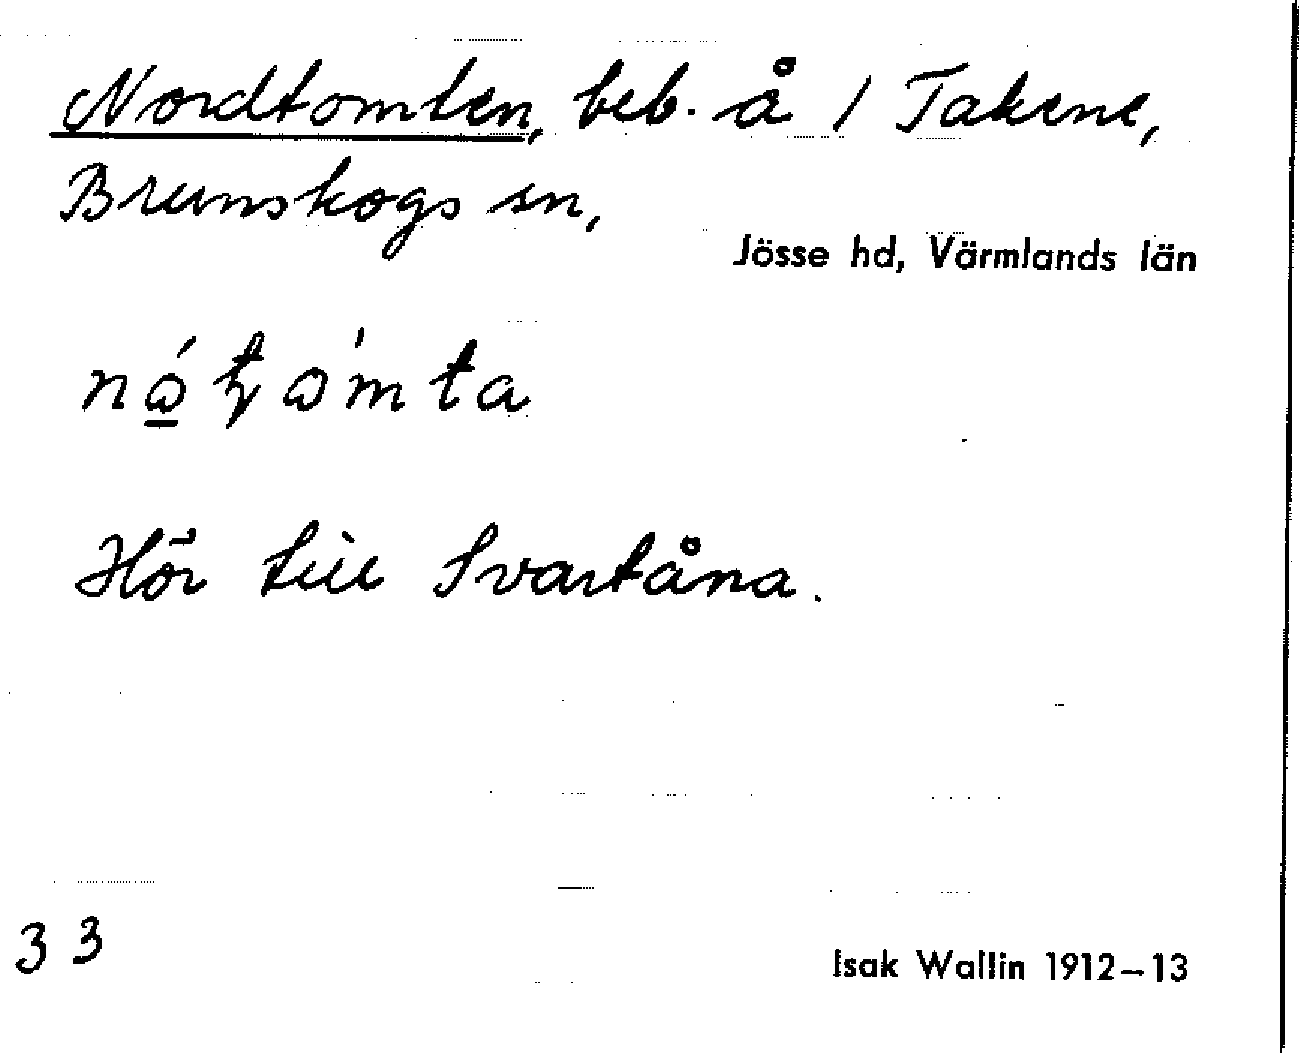 Nordtomten, beb. å / Takene,
Brunskogs sn,
Jösse hd, Värmlands län
Hör till Svartåna.
33
Isak Wallin 1912–13